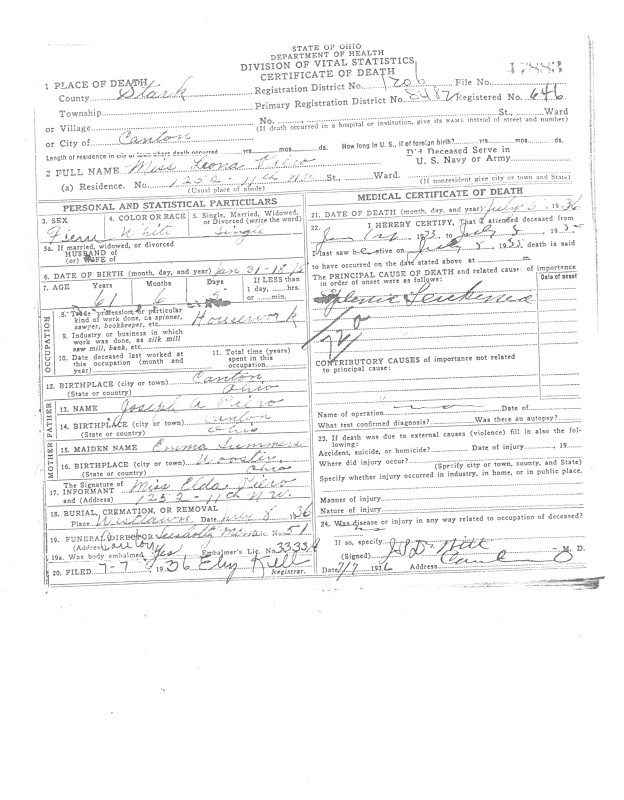 STATE OF OHIO
DEPARTMENT OF HEALTH
DIVISION OF VITAL STATISTICS
CERTIFICATE OF DEATH
1 PLACE OF DEATH
County Stark
Registration District No. 1206 File No. 47883
Township
Primary Registration District No. 8412 Registered No. 646
or Village No. St., Ward
(If death occurred in a hospital or institution, give its NAME instead of street and number)
or City of Canton
Length of residence in city or town where death occurred yrs. mos. ds. How long in U. S., if of foreign birth? yrs. mos. ds.
2 FULL NAME Miss Leona Piero
Did Deceased Serve in
U. S. Navy or Army
(a) Residence. No. 1252 - 11th N.W. St., Ward.
(Usual place of abode) (If nonresident give city or town and State)
PERSONAL AND STATISTICAL PARTICULARS
3. SEX Fem
4. COLOR OR RACE White
5. Single, Married, Widowed, or Divorced (write the word) Single
5a. If married, widowed, or divorced
HUSBAND of
(or) WIFE of
6. DATE OF BIRTH (month, day, and year) Jan 31 - 18
7. AGE Years 61 Months 6 Days 5 If LESS than
1 day, hrs.
or min.
OCCUPATION
8. Trade, profession, or particular
kind of work done, as spinner,
sawyer, bookkeeper, etc. Housework
9. Industry or business in which
work was done, as silk mill
saw mill, bank, etc.
10. Date deceased last worked at
this occupation (month and
year)
11. Total time (years)
spent in this
occupation
12. BIRTHPLACE (city or town) Canton
(State or country) Ohio
FATHER
13. NAME Joseph A Piero
14. BIRTHPLACE (city or town) Canton
(State or country) Ohio
MOTHER
15. MAIDEN NAME Emma Summers
16. BIRTHPLACE (city or town) Wooster
(State or country) Ohio
The Signature of
17. INFORMANT Miss Elda Piero
and (Address) 1252 - 11th N.W.
18. BURIAL, CREMATION, OR REMOVAL
Place Westlawn Date July 8 1936
19. FUNERAL DIRECTOR Lic. No. 51
(Address)
19a. Was body embalmed Yes Embalmer's Lic. No. 3333A
20. FILED 7-7- 1936 Registrar.
MEDICAL CERTIFICATE OF DEATH
21. DATE OF DEATH (month, day, and year) July 5 - 1936
22. I HEREBY CERTIFY, That I attended deceased from
Jan 1935, to July 5, 19
I last saw h alive on July 5, 19 death is said
to have occurred on the date stated above at m.
The PRINCIPAL CAUSE OF DEATH and related cause of importance
in order of onset were as follows: Date of onset
Splenic Leukemia
72
CONTRIBUTORY CAUSES of importance not related
to principal cause:
Name of operation Date of
What test confirmed diagnosis? Was there an autopsy?
23. If death was due to external causes (violence) fill in also the following:
Accident, suicide, or homicide? Date of injury , 19
Where did injury occur?
(Specify city or town, county, and State)
Specify whether injury occurred in industry, in home, or in public place.
Manner of injury
Nature of injury
24. Was disease or injury in any way related to occupation of deceased?
no
If so, specify
(Signed) M. D.
Date 7/7 1936 Address